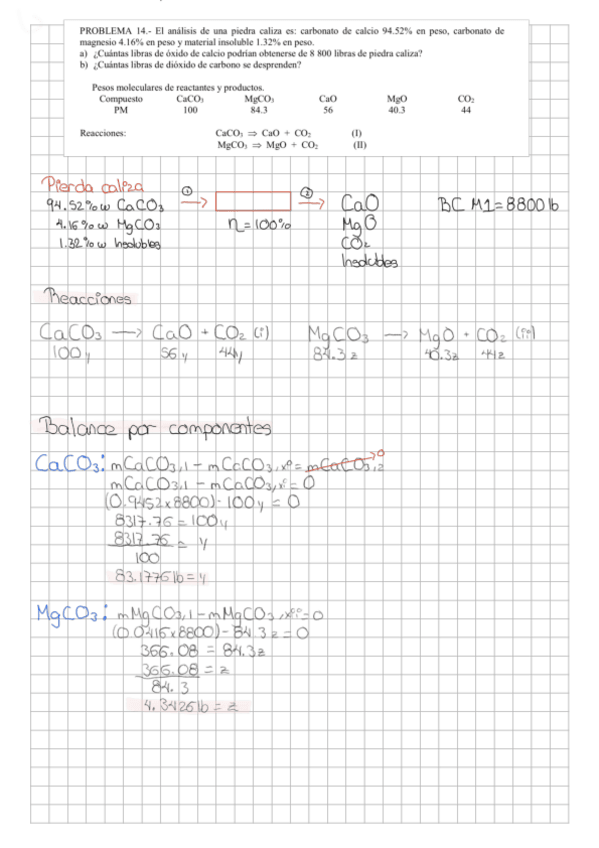 PROBLEMA 14.- El análisis de una piedra caliza es: carbonato de calcio 94.52% en peso, carbonato de
magnesio 4.16% en peso y material insoluble 1.32% en peso.
a) ¿Cuántas libras de óxido de calcio podrían obtenerse de 8 800 libras de piedra caliza?
b) ¿Cuántas libras de dióxido de carbono se desprenden?
Pesos moleculares de reactantes y productos.
Compuesto CaCO₃ MgCO₃ CaO MgO CO₂
PM 100 84.3 56 40.3 44
Reacciones: CaCO₃ ⇒ CaO + CO₂ (I)
MgCO₃ ⇒ MgO + CO₂ (II)
Pierda caliza ① → ② → CaO BC M1 = 8800 lb
94.52% w CaCO₃ n = 100% MgO
4.16% w MgCO₃ CO₂
1.32% w Insolubles Insolubles
Reacciones
CaCO₃ → CaO + CO₂ (i) MgCO₃ → MgO + CO₂ (ii)
100y 56y 44y 84.3z 40.3z 44z
Balance por componentes
CaCO₃: mCaCO₃,1 - mCaCO₃,xⁱ = mCaCO₃,2 → 0
mCaCO₃,1 - mCaCO₃,xⁱ = 0
(0.9452 x 8800) - 100y = 0
8317.76 = 100y
8317.76 = y
100
83.1776 lb = y
MgCO₃: mMgCO₃,1 - mMgCO₃,xⁱⁱ = 0
(0.0416 x 8800) - 84.3z = 0
366.08 = 84.3z
366.08 = z
84.3
4.3426 lb = z